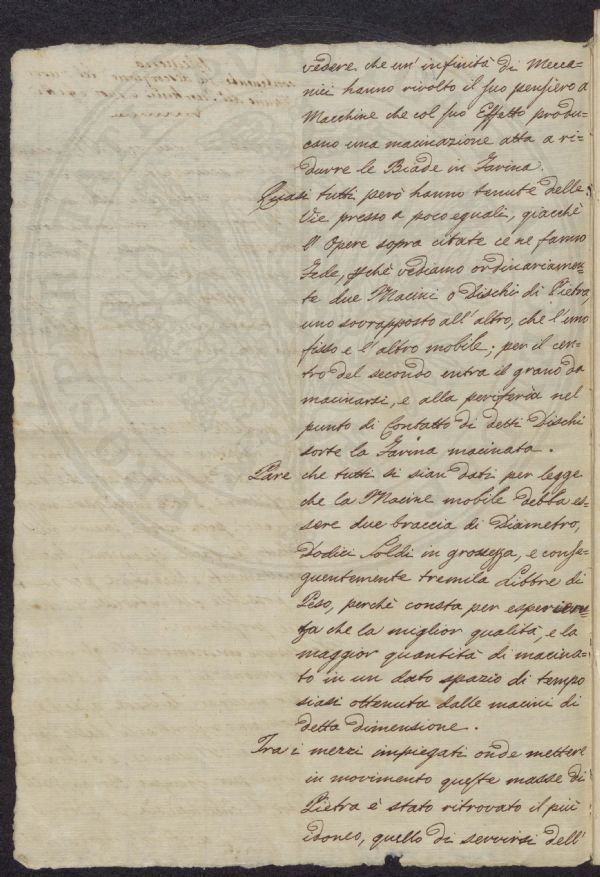 vedere che un' infinità di Mecca=
nici hanno rivolto il suo pensiero a
Macchine che col suo Effetto produ=
cano una macinazione atta a ri=
durre le Biade in Farina.
Quasi tutti però hanno tenute delle
Vie presso a poco eguali, giacchè
l' Opere sopra citate ce ne fanno
Fede, pchè vediamo ordinariamen=
te due Macini o Dischi di Pietra,
uno sovrapposto all' altro, che l'uno
fisso e l' altro mobile; per il cen=
tro del secondo entra il grano da
macinarsi, e alla periferia nel
punto di Contatto di detti Dischi
sorte la Farina macinata.
Pare che tutti si sian dati per legge
che la Macine mobile debba es=
sere due braccia di Diametro,
Dodici Soldi in grossezza, e conse=
guentemente tremila Libbre di
Peso, perchè consta per esperien=
za che la miglior qualità, e la
maggior quantità di macina=
to in un dato spazio di tempo
siasi ottenuta dalle macini di
detta dimensione.
Tra i mezzi impiegati onde mettere
in movimento queste masse di
Pietra è stato ritrovato il più
idoneo, quello di servirsi dell'